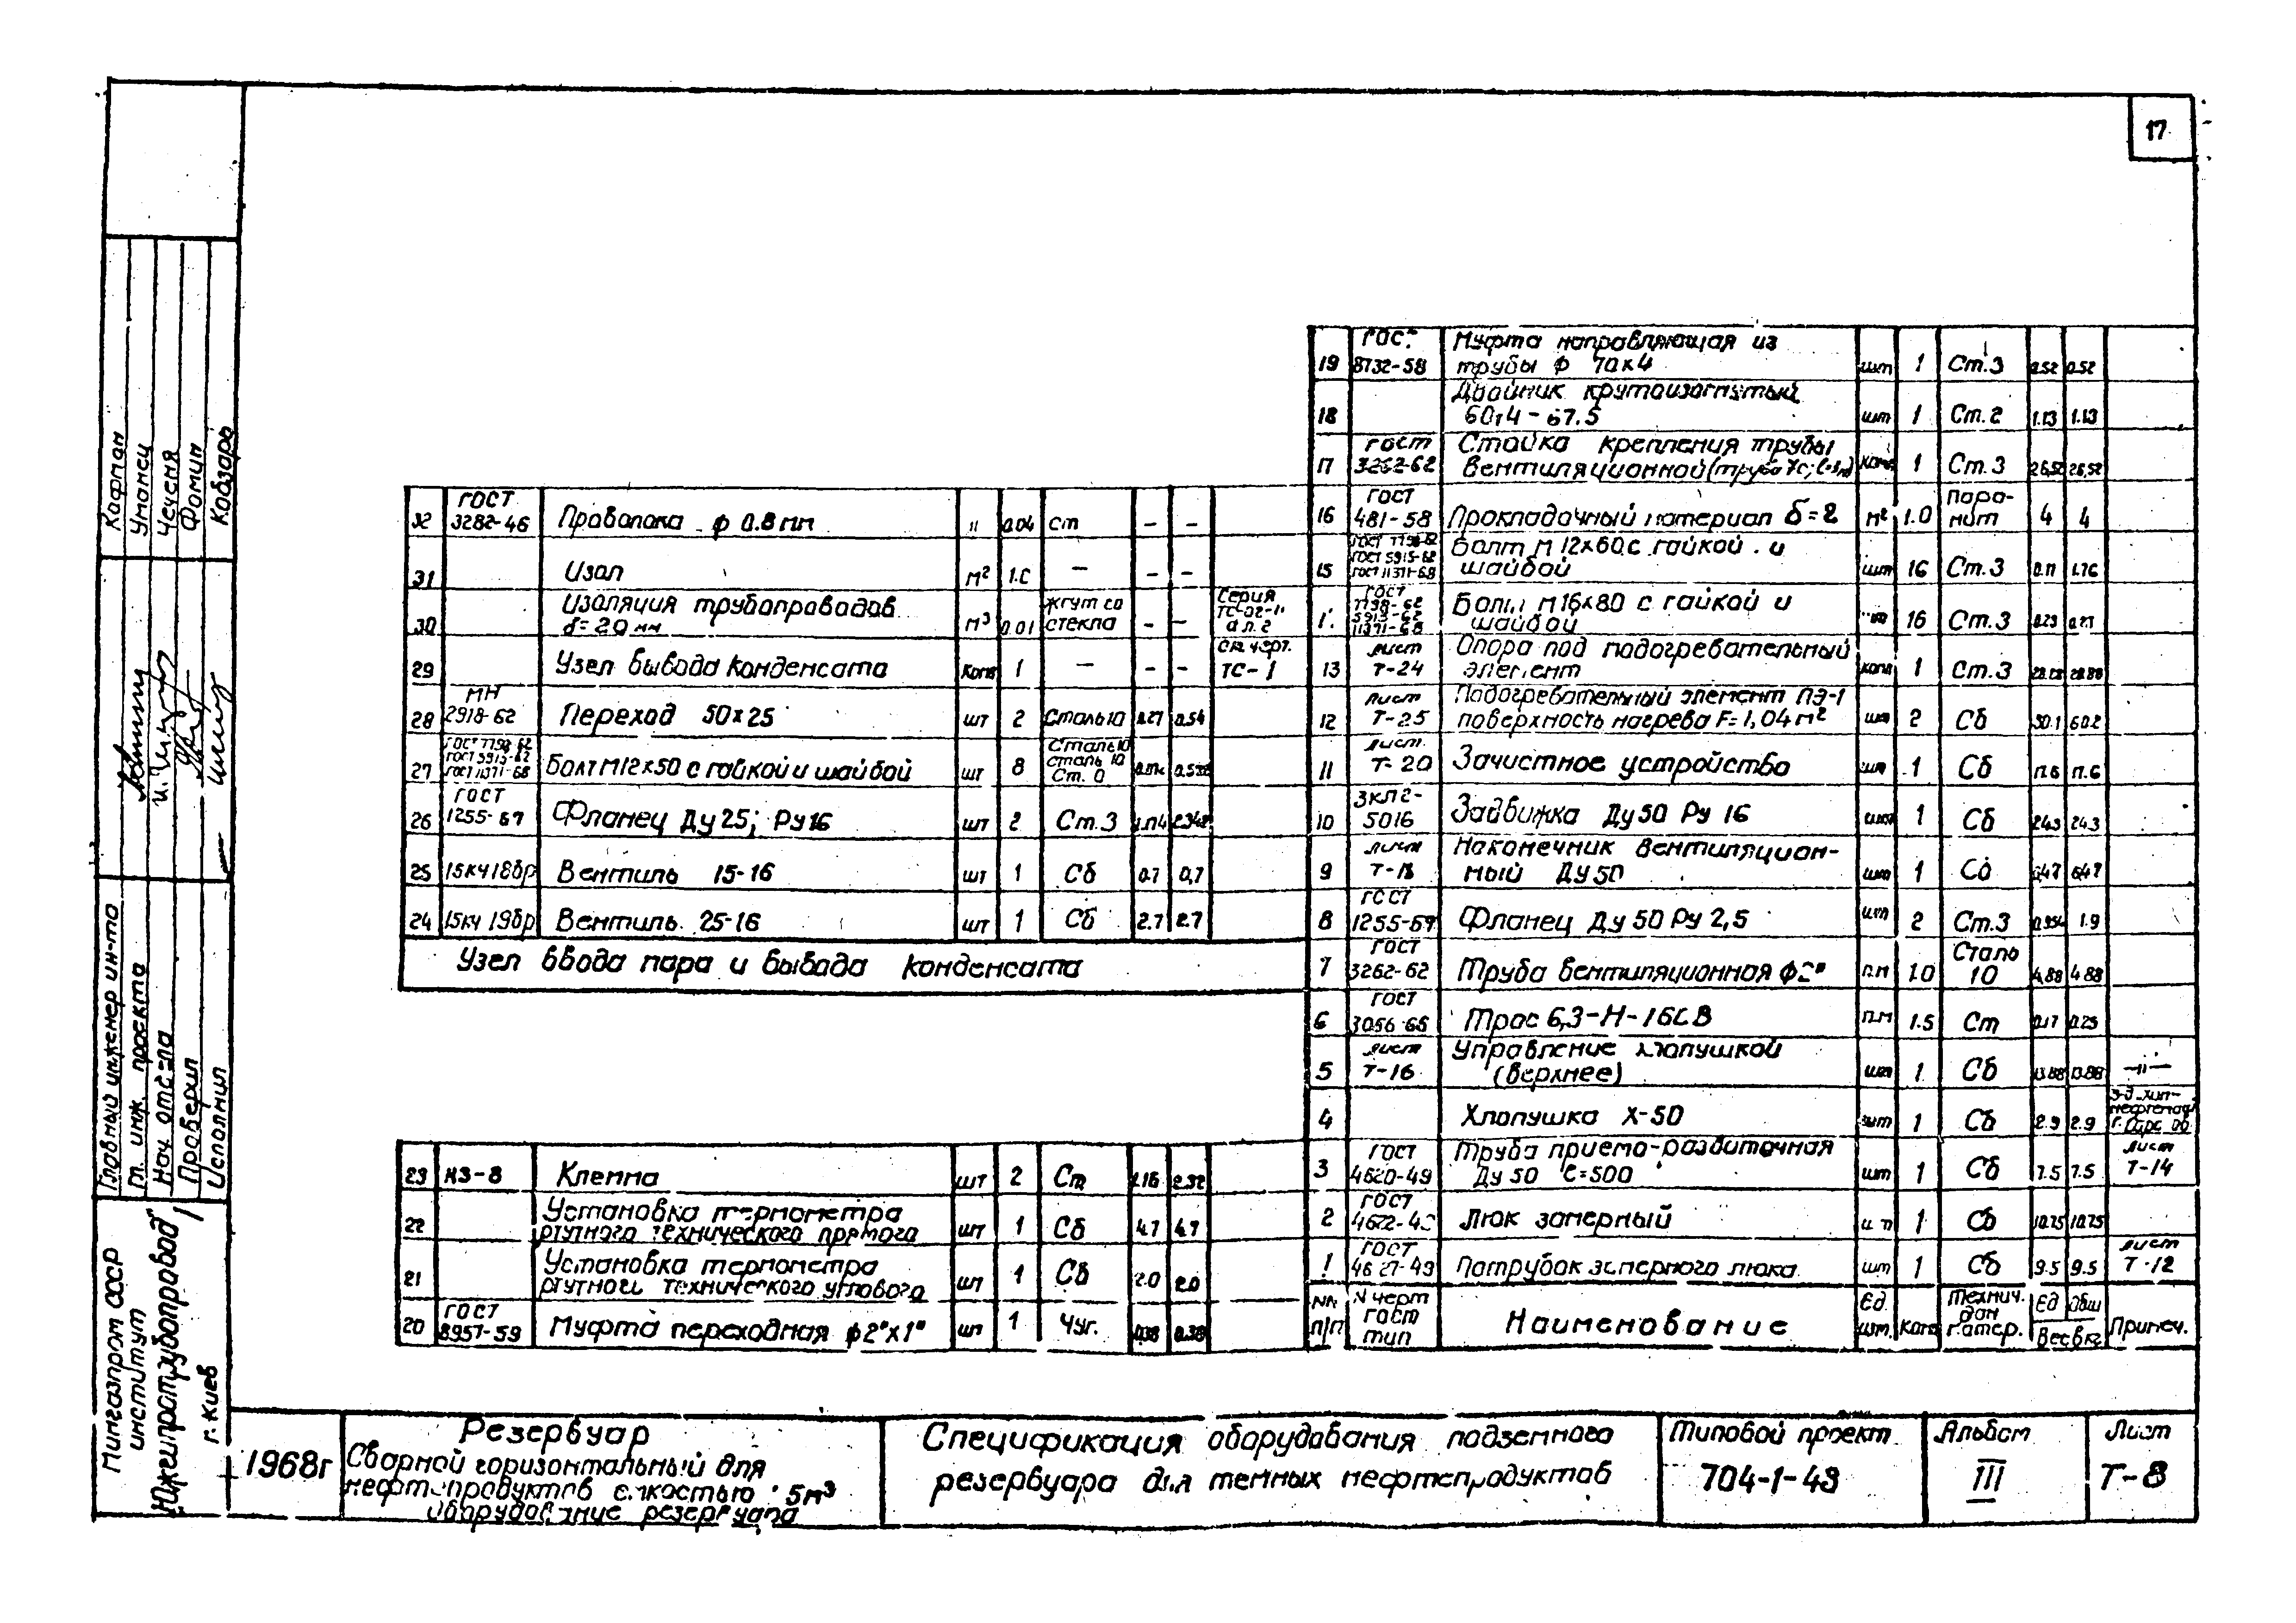 17
19 ГОСТ 8732-58 Муфта направляющая из трубы ф 70х4 шт 1 Ст.3 0.52 0.52
18 Двойник крутоизогнутый 60х4-67.5 шт 1 Ст.2 1.13 1.13
17 ГОСТ 3262-62 Стойка крепления трубы вентиляционной комп 1 Ст.3 26,52 26,52
16 ГОСТ 481-58 Прокладочный материал δ=2 м² 1.0 паро-нит 4 4
15 ГОСТ 7798-62 ГОСТ 5915-62 ГОСТ 11371-68 Болт М 12х60 с гайкой и шайбой шт 16 Ст.3 0.11 1.76
ГОСТ 7798-62 5915-62 11371-68 Болт М16х80 с гайкой и шайбой шт 16 Ст.3 0.23
13 лист Т-24 Опора под подогревательный элемент комп 1 Ст.3 28.88
12 лист Т-25 Подогревательный элемент ПЭ-1 поверхность нагрева F=1,04м² шт 2 Сб 30.1 60.2
11 лист Т-20 Зачистное устройство шт 1 Сб 17.6 17.6
10 ЗКЛ2-5016 Задвижка Ду50 Ру 16 шт 1 Сб 24.3 24.3
9 лист Т-18 Наконечник вентиляцион-ный Ду50 шт 1 Сб 6,47 6,47
8 ГОСТ 1255-67 Фланец Ду 50 Ру 2,5 шт 2 Ст.3 0.954 1.9
7 ГОСТ 3262-62 Труба вентиляционная ф2" п.м 1.0 Сталь 10 4.88 4.88
6 ГОСТ 3056-65 Трос 6,3-Н-16СВ п.м 1.5 Ст 0.17 0.25
5 лист Т-16 Управление хлопушкой (верхнее) шт 1 Сб 13.88 13.88 —"—
4 Хлопушка Х-50 шт 1 Сб 2.9 2.9 З-д
3 ГОСТ 4620-49 Труба приемо-раздаточная Ду 50 ℓ=500 шт 1 Сб 7.5 7.5 лист Т-14
2 ГОСТ Люк замерный шт 1 Сб 10.75 10.75
1 ГОСТ 4627-49 Патрубок замерного люка шт 1 Сб 9.5 9.5 лист Т-12
NN п/п N черт ГОСТ тип Наименование Ед. изм. Колич Технич. дан матер. Ед Общ Вес в кг Примеч.
32 ГОСТ 3282-46 Проволока ф 0.8 мм " 0.04 ст — —
31 Изол м² 1.0 — — —
30 Изоляция трубопроводов δ=20мм м³ 0.01 жгут со стекла — — Серия
29 Узел вывода конденсата Комп 1 — — — см. черт. ТС-1
28 МН 2918-62 Переход 50х25 шт 2 Сталь10 0.27 0.54
27 ГОСТ 7798-62 ГОСТ 5915-62 ГОСТ 11371-68 Болт М12х50 с гайкой и шайбой шт 8 Сталь10 сталь 10 Ст. 0
26 ГОСТ 1255-67 Фланец Ду25; Ру16 шт 2 Ст.3
25 15кч18бр Вентиль 15-16 шт 1 Сб 0.7 0,7
24 15кч 19бр Вентиль 25-16 шт 1 Сб 2.7 2.7
Узел ввода пара и вывода конденсата
23 КЗ-8 Клемма шт 2 Ст 1.16 2.32
22 Установка термометра ртутного технического прямого шт 1 Сб 4.7 4.7
21 Установка термометра ртутного технического углового шт 1 Сб 2.0 2.0
20 ГОСТ 8957-59 Муфта переходная ф2"х1" шт 1 Чуг. 0.38 0.38
Кофман
Уманец
Чеченя
Фомин
Кобзарь
Главный инженер ин-та
Гл. инж. проекта
Нач. отдела
Проверил
Исполнил
Мингазпром СССР
институт
Южгипротрубопровод
г. Киев
1968г
Резервуар
Сварной горизонтальный для
нефтепродуктов емкостью 5м³
Оборудование резервуара
Спецификация оборудования подземного
резервуара для темных нефтепродуктов
Типовой проект
704-1-43
Альбом
III
Лист
Т-8